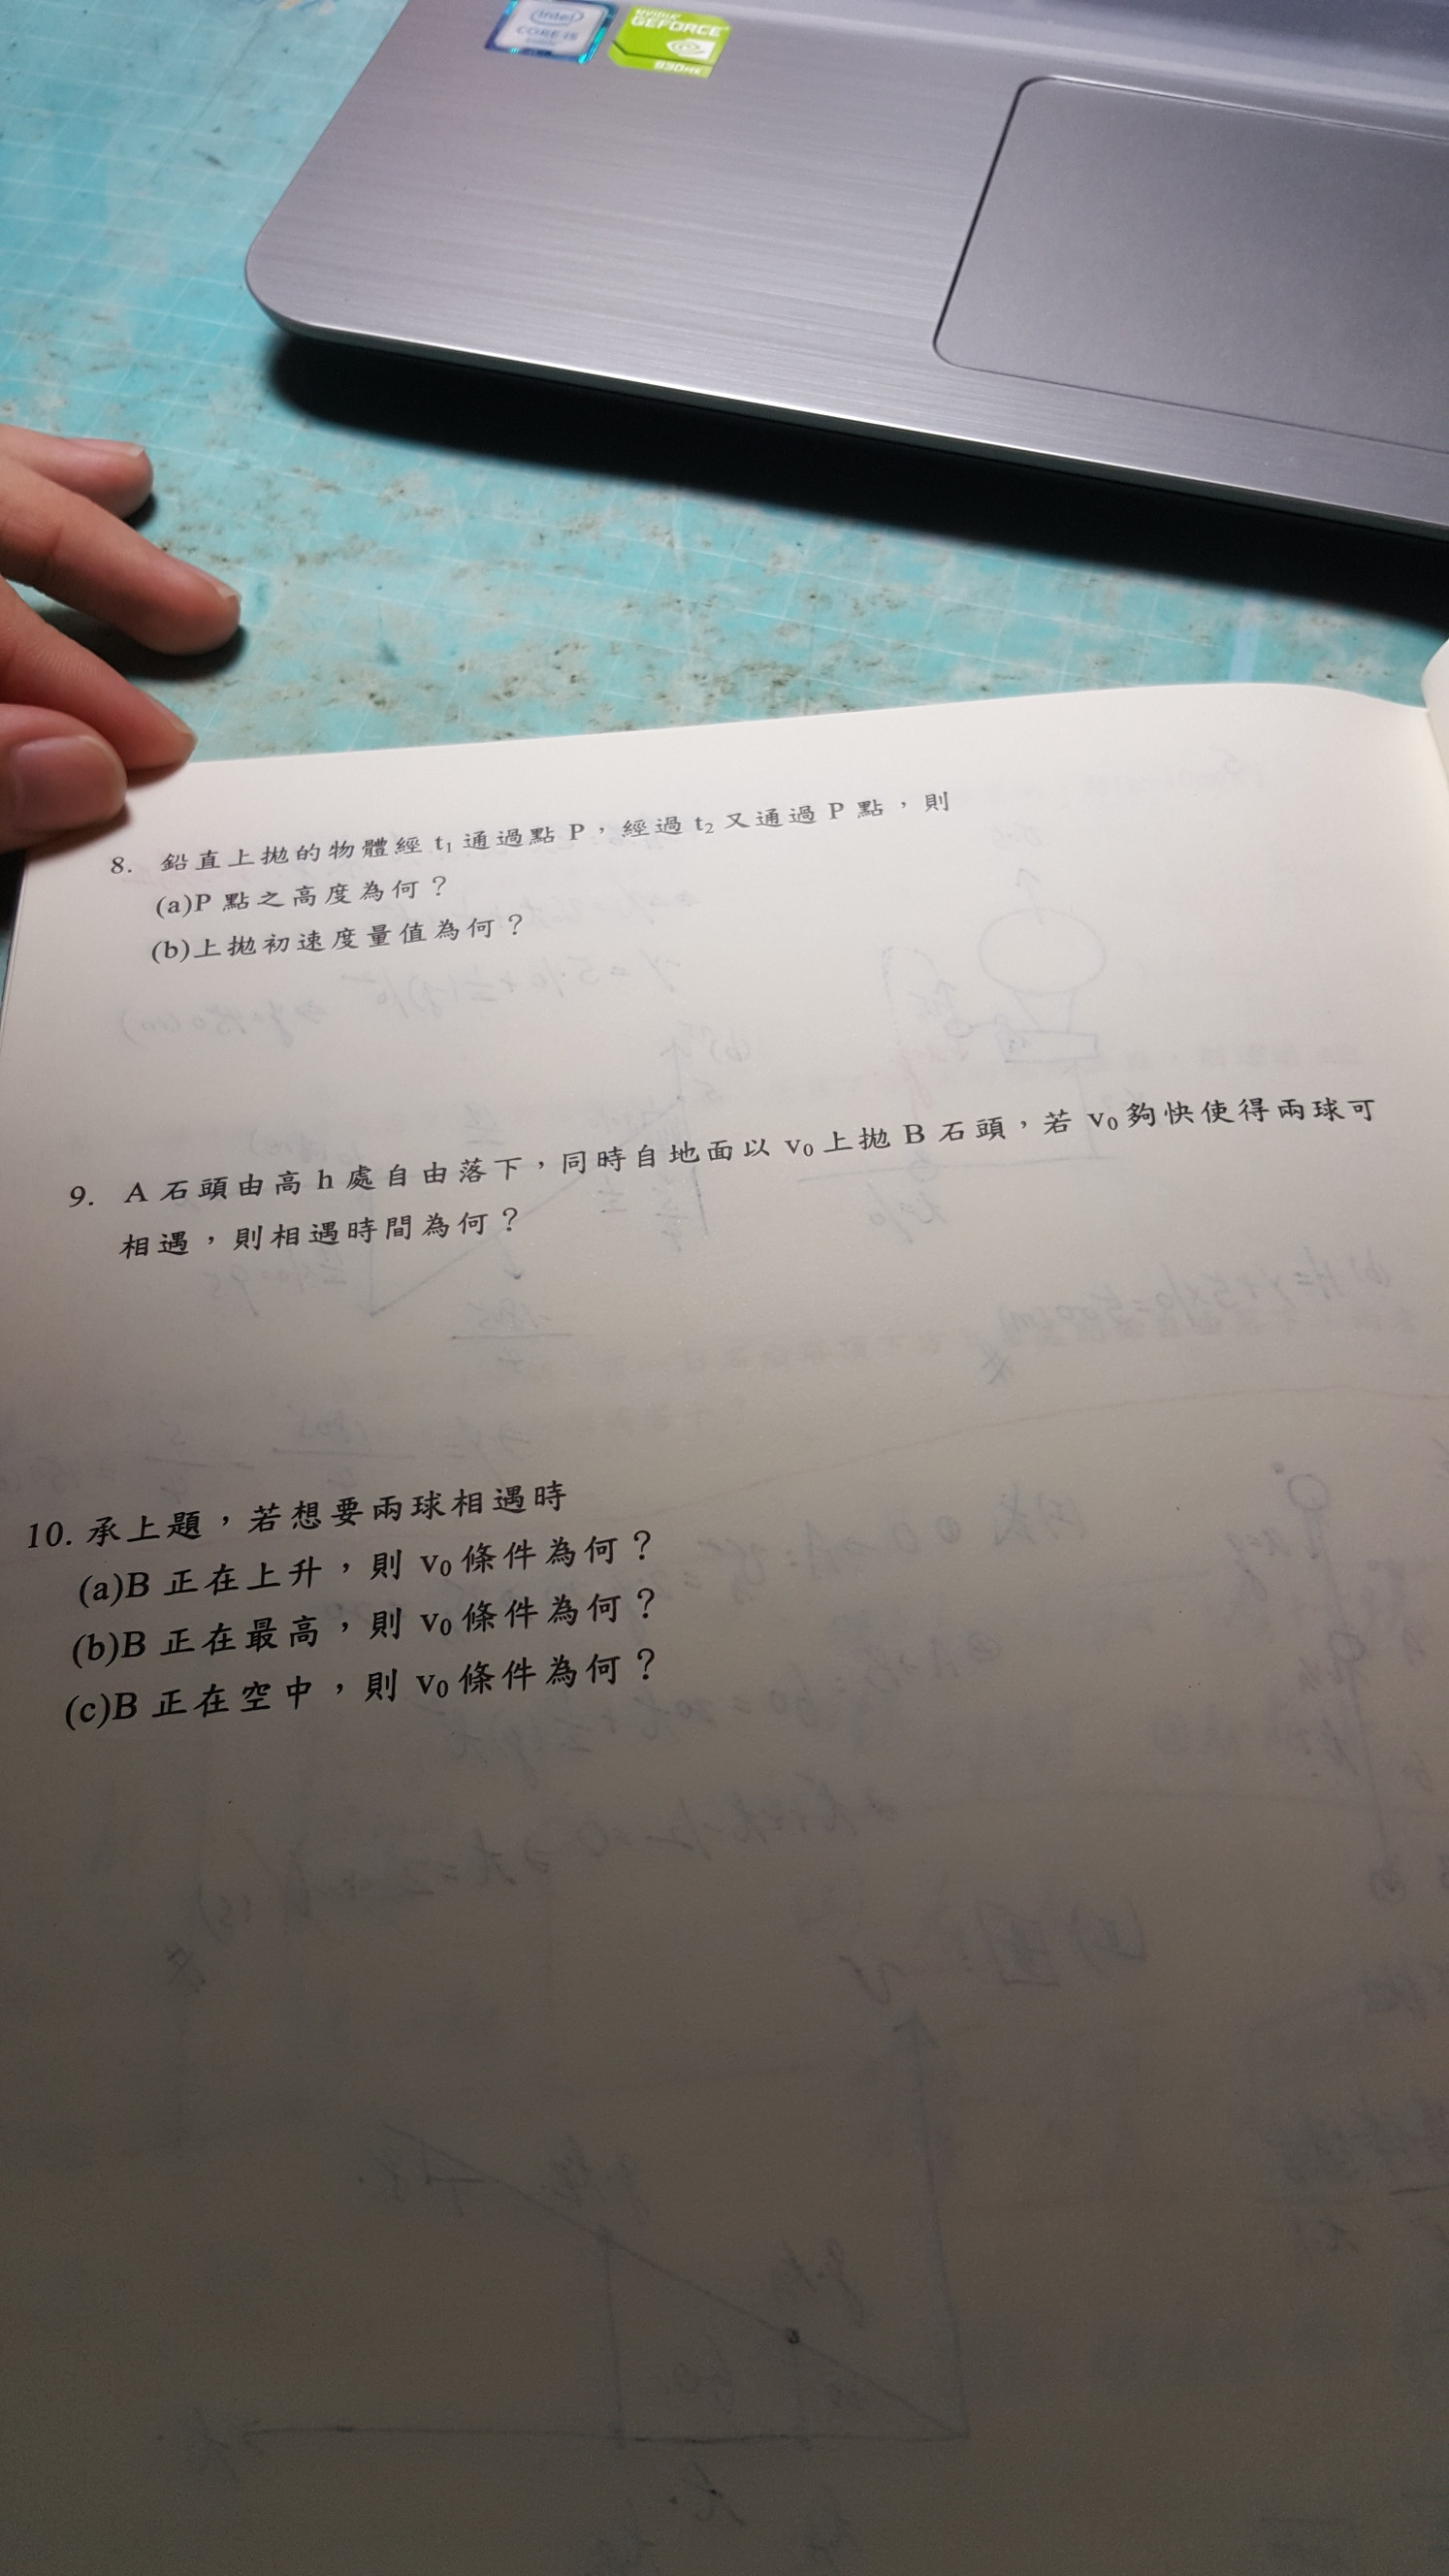 intel
CORE i5
NVIDIA
GEFORCE
930MX
8. 鉛直上拋的物體經 t₁ 通過點 P，經過 t₂ 又通過 P 點，則
(a)P 點之高度為何？
(b)上拋初速度量值為何？
9. A 石頭由高 h 處自由落下，同時自地面以 v₀ 上拋 B 石頭，若 v₀ 夠快使得兩球可
相遇，則相遇時間為何？
10. 承上題，若想要兩球相遇時
(a)B 正在上升，則 v₀ 條件為何？
(b)B 正在最高，則 v₀ 條件為何？
(c)B 正在空中，則 v₀ 條件為何？